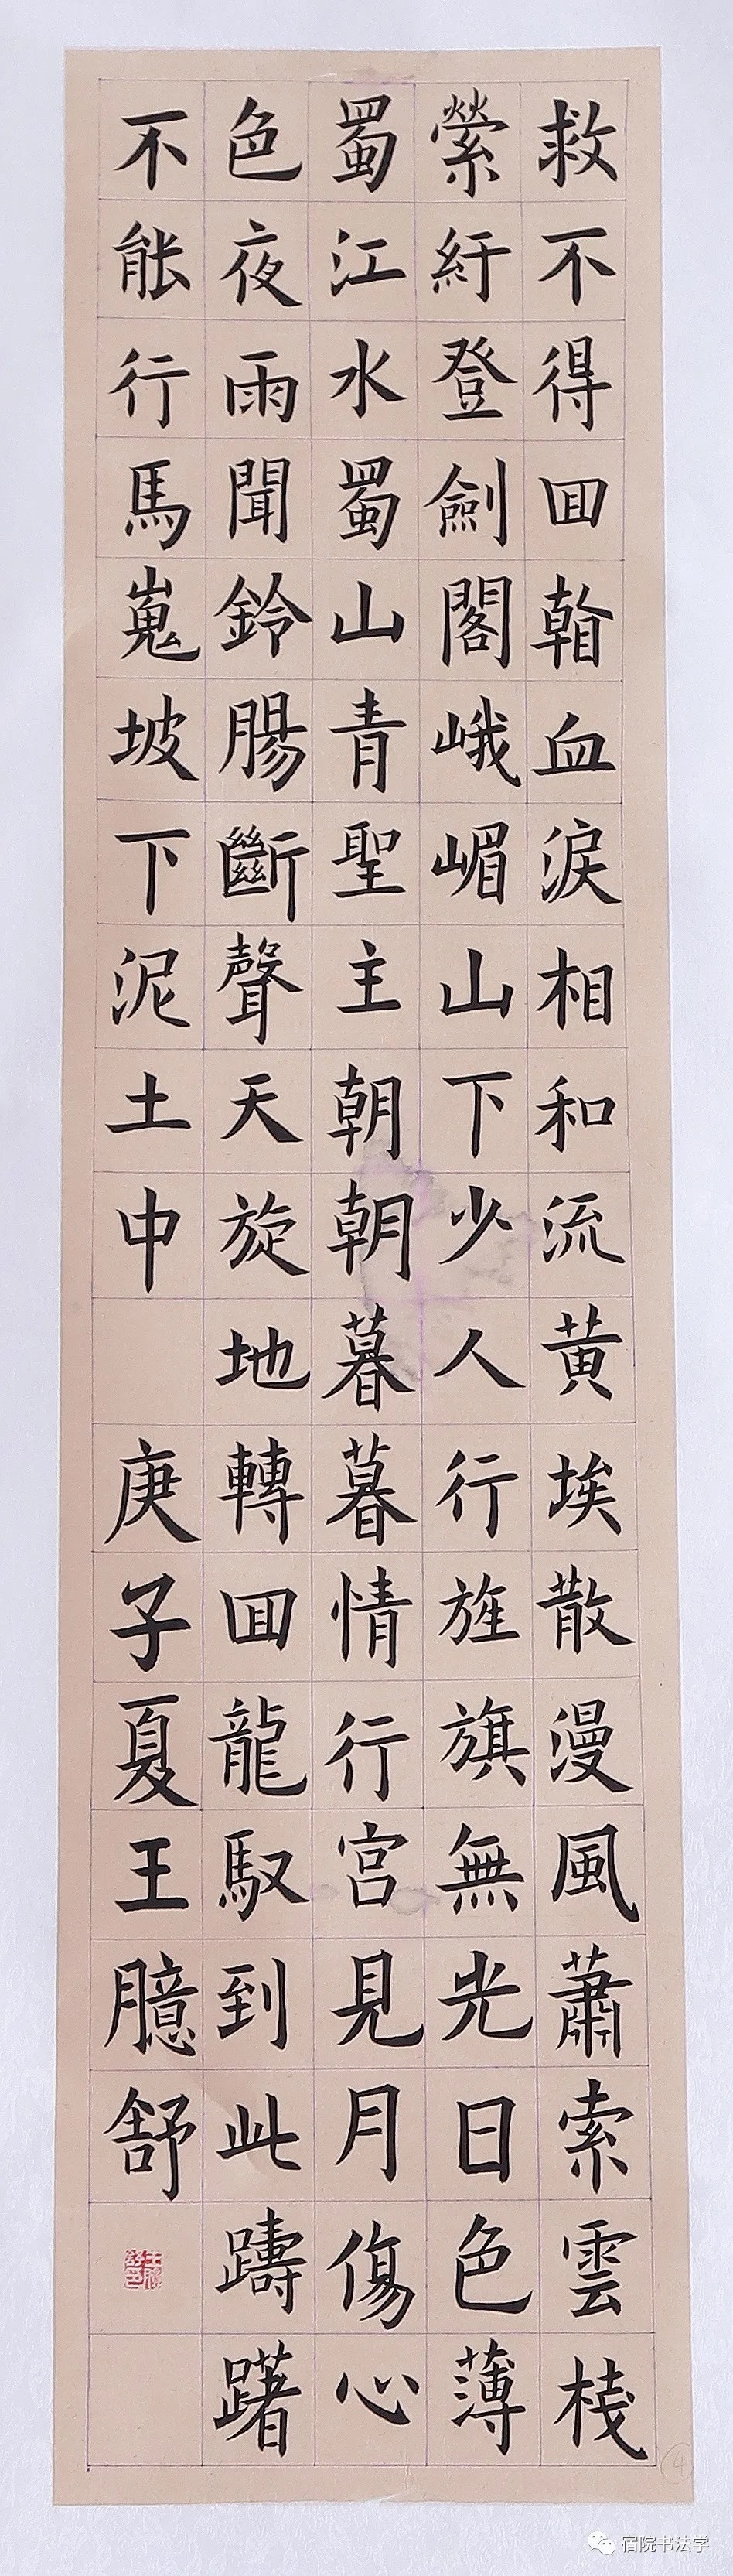 救不得囬㫪血淚相和流黄埃散漫風蕭索雲棧
縈紆登劍閣峨嵋山下少人行旌旗無光日色薄
蜀江水蜀山青聖主朝朝暮暮情行宫見月傷心
色夜雨聞鈴腸斷聲天旋地轉囬龍馭到此躊躇
不能行馬嵬坡下泥土中
庚子夏王臆舒
④
宿院书法学